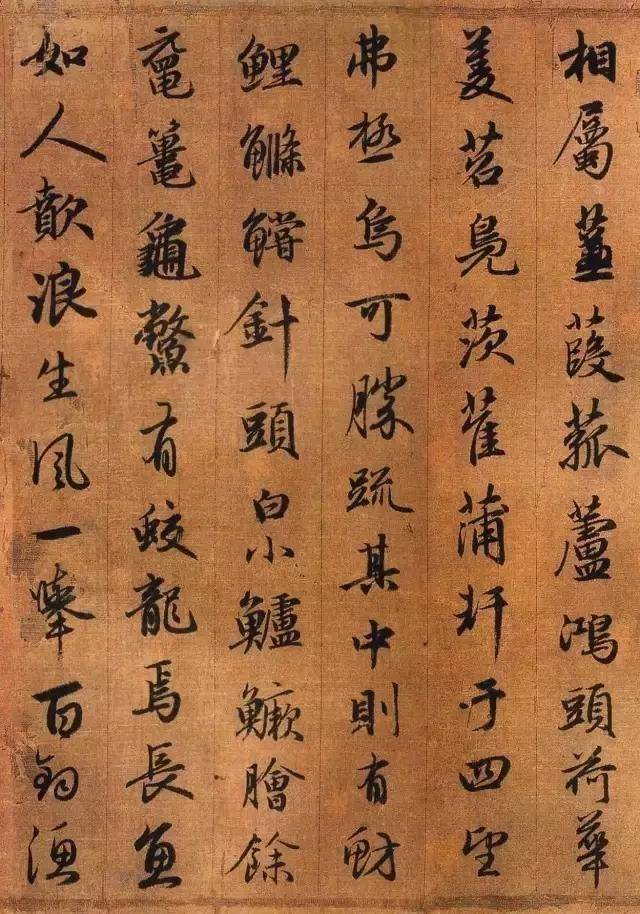 相屬蒹葭菰蘆鴻頭荷華
菱苕鳧茨萑蒲軒于四望
弗極烏可勝疏其中則有魴
鯉鰷鱨針頭白小鱸鱖膾餘
黿鼉龜鱉有蛟龍焉長魚
如人歕浪生風一舉百鈞漁